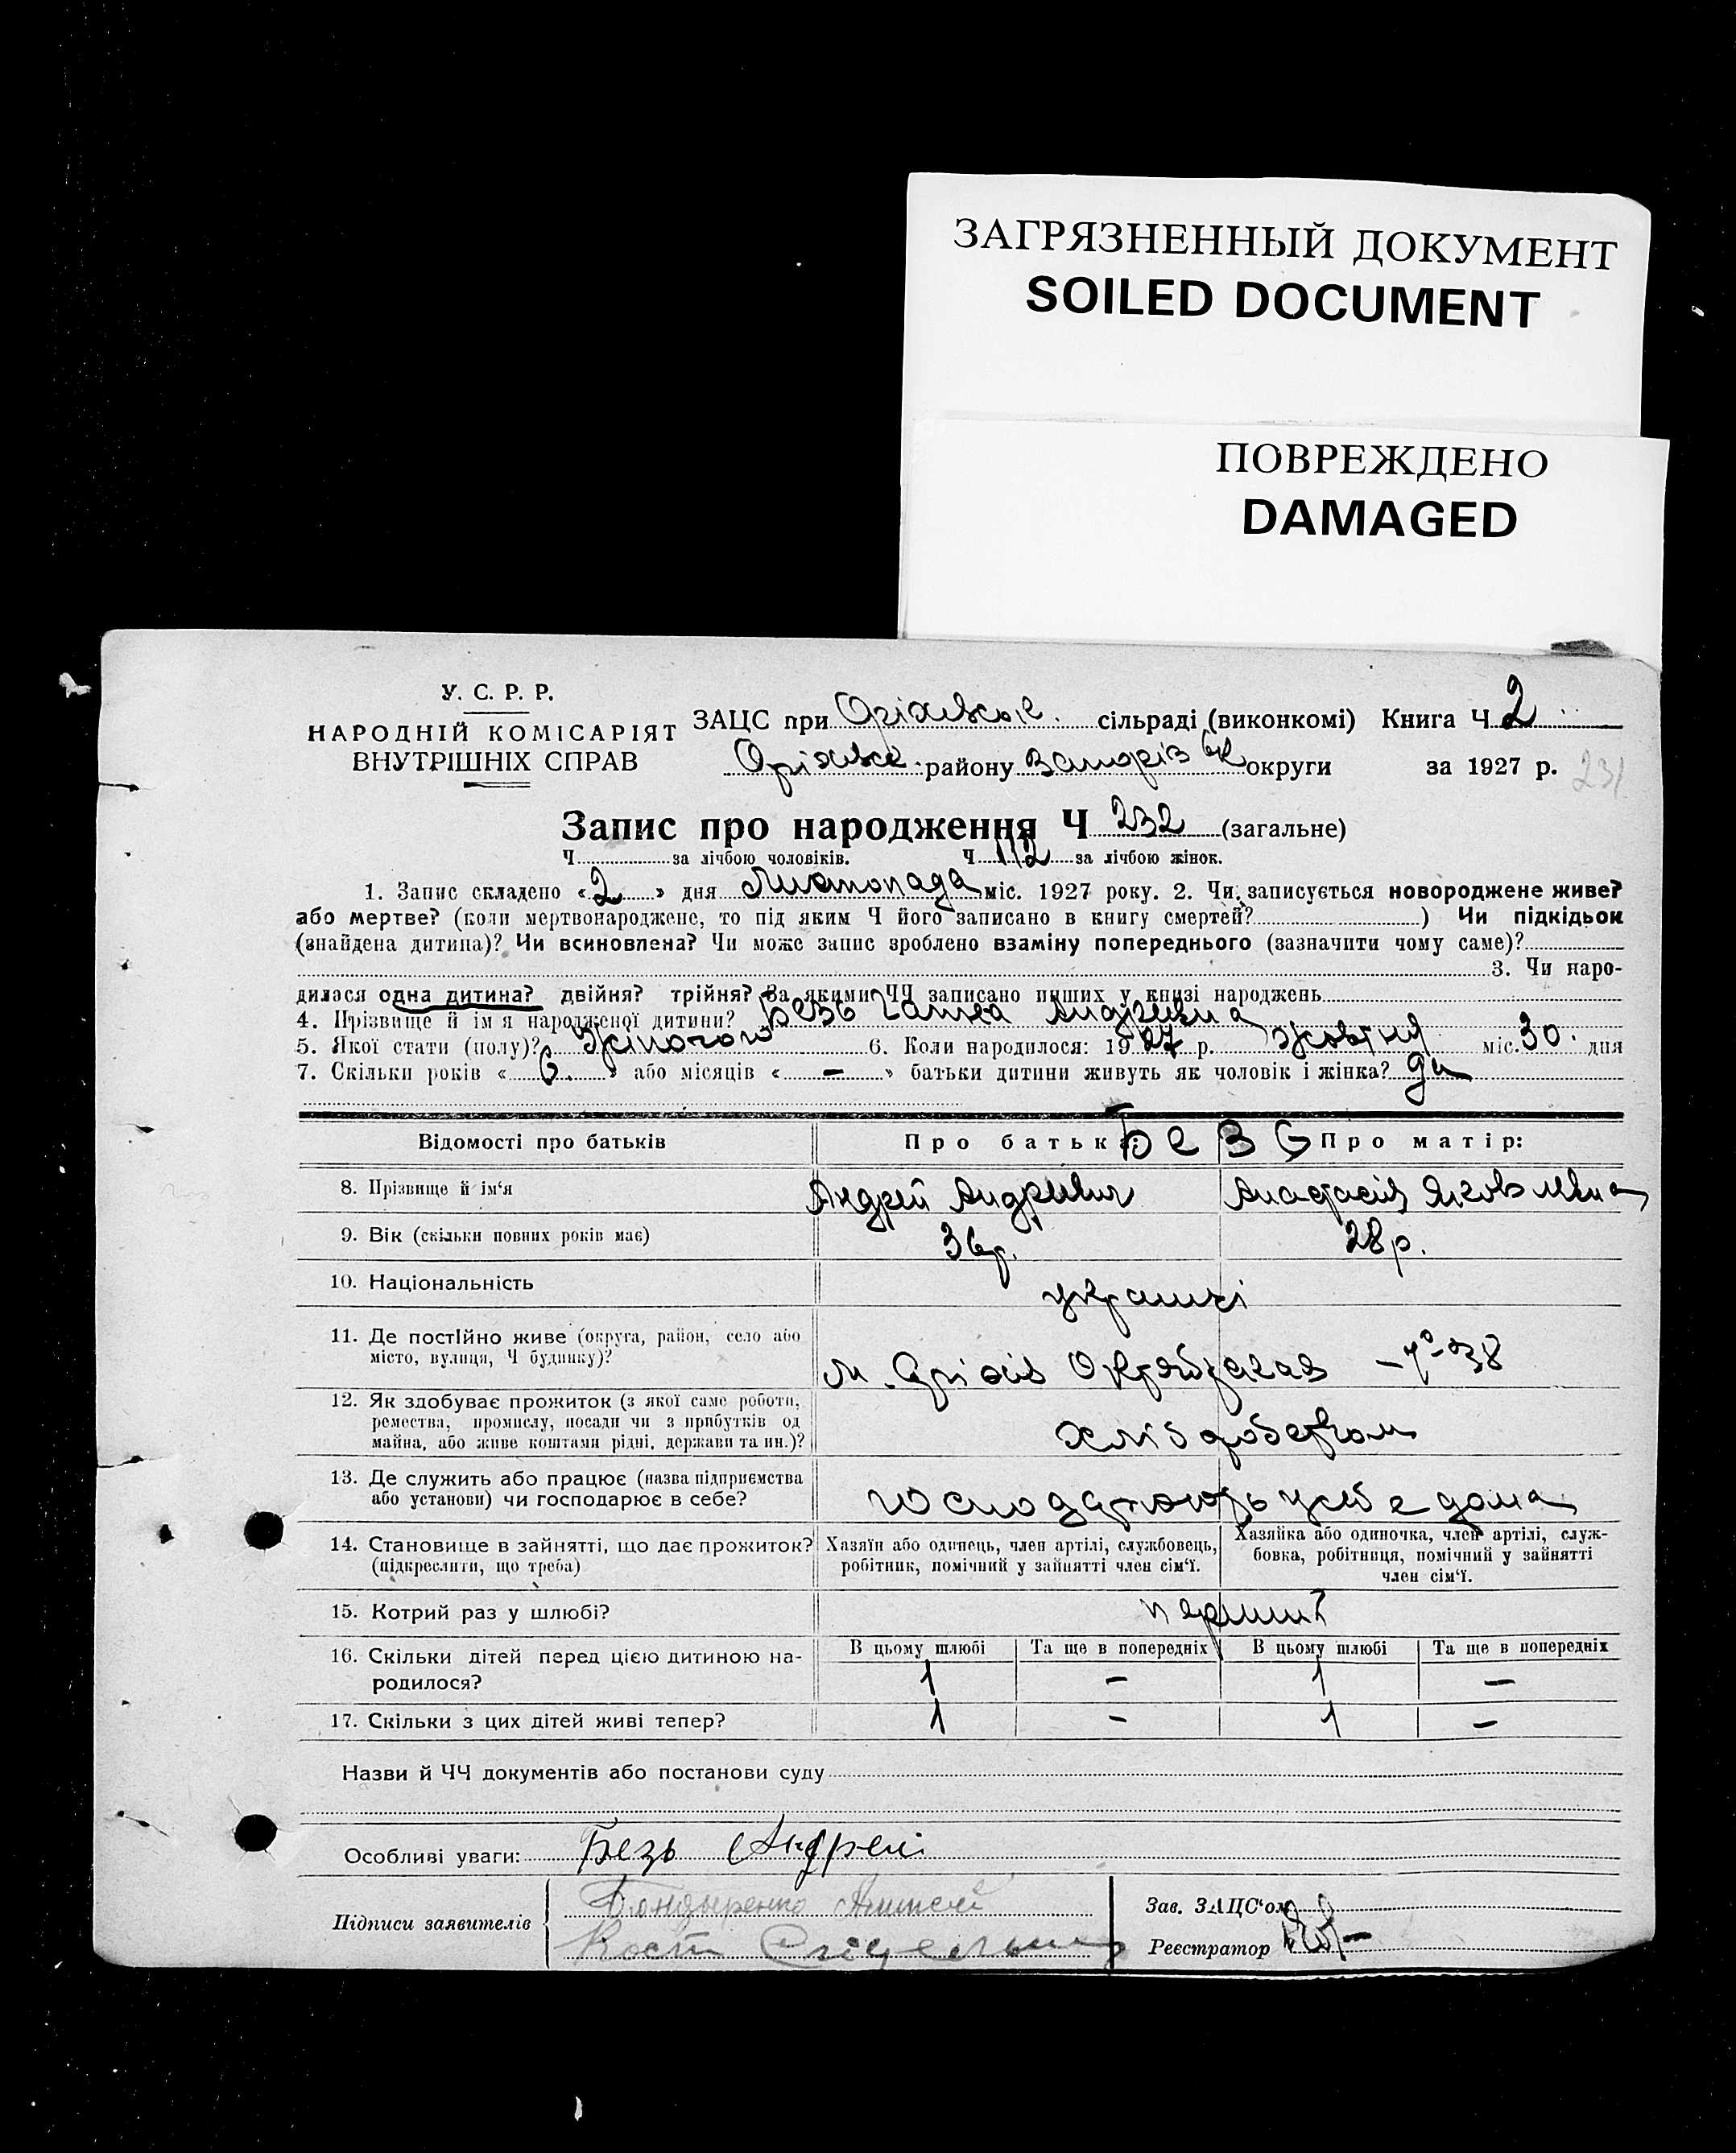 ЗАГРЯЗНЕННЫЙ ДОКУМЕНТ
SOILED DOCUMENT
ПОВРЕЖДЕНО
DAMAGED
У. С. Р. Р.
НАРОДНІЙ КОМІСАРІЯТ
ВНУТРІШНІХ СПРАВ
ЗАЦС при Оріхівське сільраді (виконкомі) Книга Ч 2
Оріхівск. району Запоріз ьк округи за 1927 р. 231
Запис про народження Ч 232 (загальне)
Ч за лічбою чоловіків. Ч 112 за лічбою жінок.
1. Запис складено «2» дня Листопада міс. 1927 року. 2. Чи записується новороджене живе?
або мертве? (коли мертвонароджене, то під яким Ч його записано в книгу смертей? ) Чи підкідьок
(знайдена дитина)? Чи всиновлена? Чи може запис зроблено взаміну попереднього (зазначити чому саме)?
3. Чи наро-
дилася одна дитина? двійня? трійня? За якими ЧЧ записано инших у книзі народжень
4. Прізвище й ім'я народженої дитини? Безь Андріевна
5. Якої стати (полу)? Жіночого 6. Коли народилося: 1927 р. жовтня міс. 30. дня
7. Скільки років «6.» або місяців «—» батьки дитини живуть як чоловік і жінка? да
Відомості про батьків Про батька: Безь Про матір:
8. Прізвище й ім'я Андрей Андріевич Анастасія Яковлевна
9. Вік (скільки повних років має) 36р. 28р.
10. Національність українці
11. Де постійно живе (округа, район, село або
місто, вулиця, Ч будинку)? м. Оріхів Октябрская 38
12. Як здобуває прожиток (з якої саме роботи,
ремества, промислу, посади чи з прибутків од
майна, або живе коштами рідні, держави та ин.)? хліборобством
13. Де служить або працює (назва підприємства
або установи) чи господарює в себе? господарюють у себе дома
14. Становище в зайнятті, що дає прожиток?
(підкреслити, що треба)
Хазяїн або одинець, член артілі, службовець,
робітник, помічний у зайнятті член сім'ї.
Хазяйка або одиночка, член артілі, служ-
бовка, робітниця, помічний у зайнятті
член сім'ї.
15. Котрий раз у шлюбі? перший
В цьому шлюбі Та ще в попередніх В цьому шлюбі Та ще в попередніх
16. Скільки дітей перед цією дитиною на-
родилося? 1 — 1 —
17. Скільки з цих дітей живі тепер? 1 — 1 —
Назви й ЧЧ документів або постанови суду
Особливі уваги: Безь Андрей
Підписи заявителів Бондыренко
Кость
Зав. ЗАЦС'ом
Реєстратор